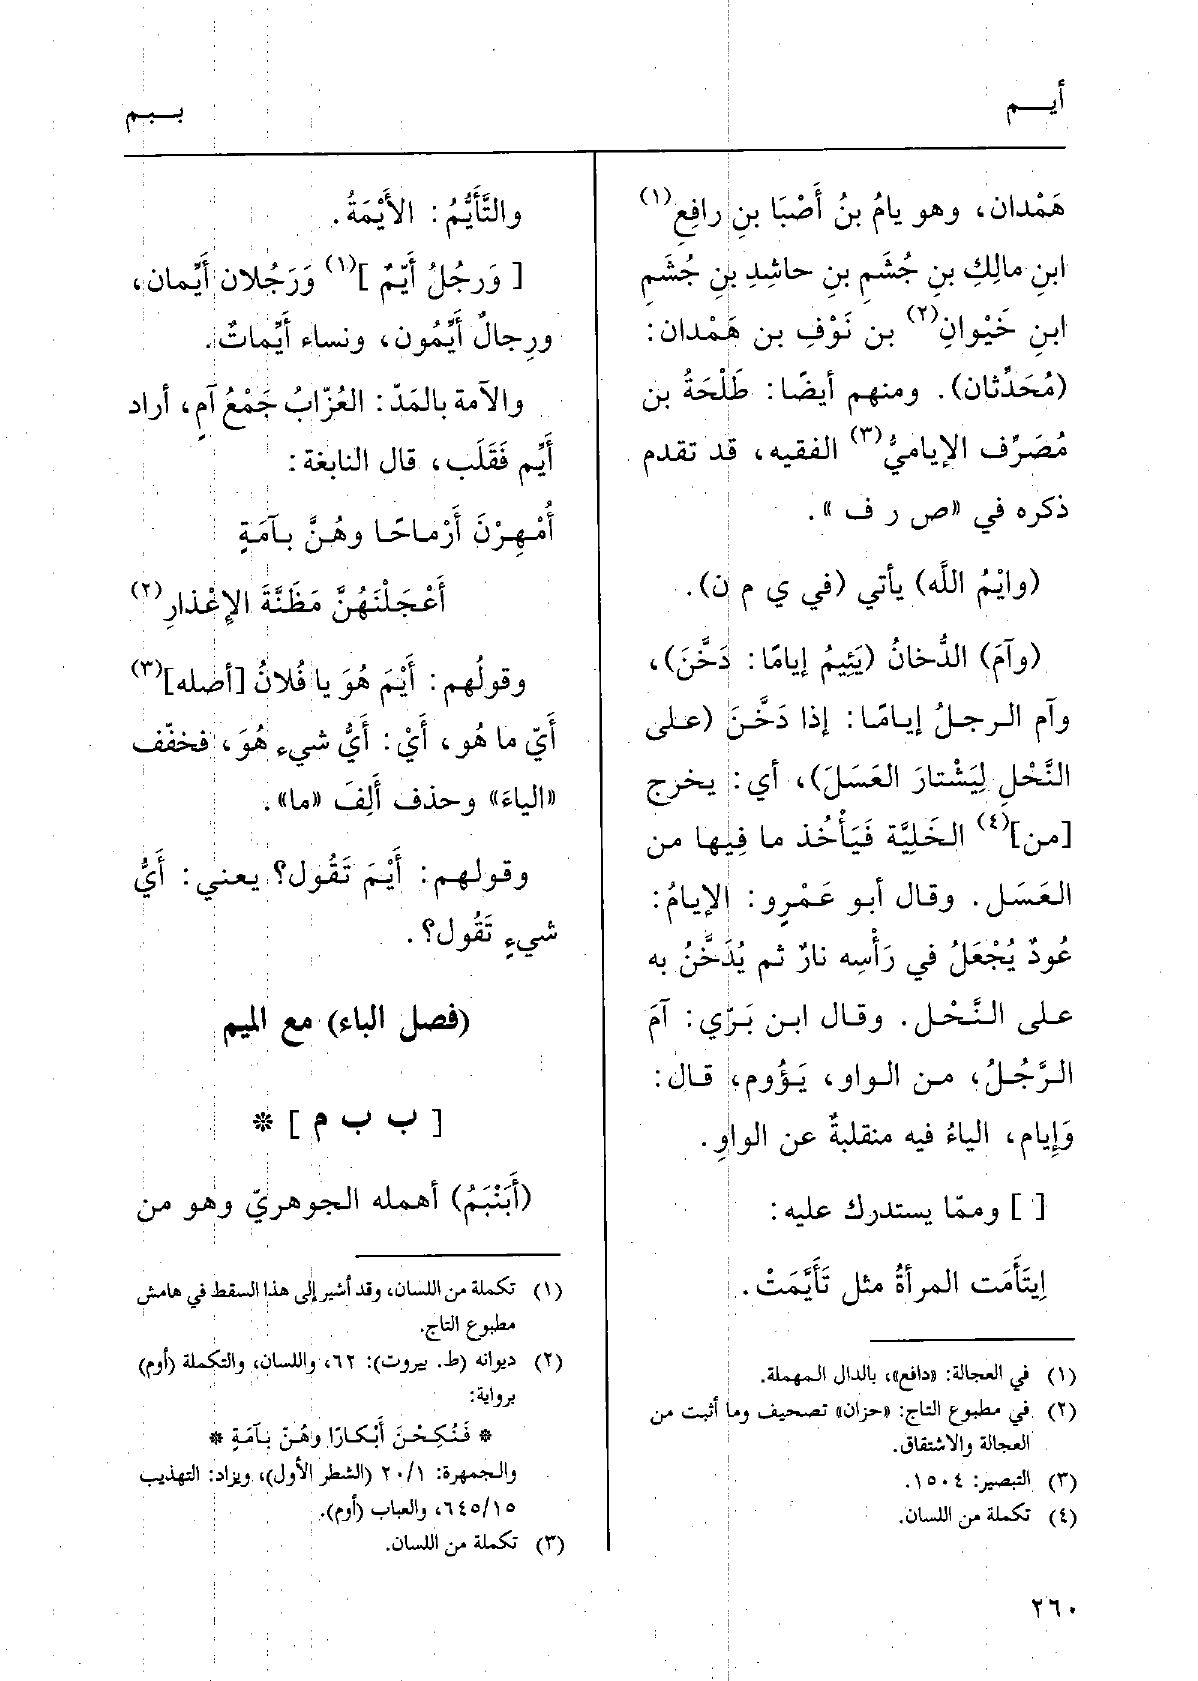 أيـــم
بـــبم
هَمْدان، وهو يامُ بنُ أَصْبَا بنِ رافِعٍ(١)
ابنِ مالِكِ بنِ جُشَمِ بنِ حاشِدِ بنِ جُشَمِ
ابنِ خَيْوانِ(٢) بن نَوْفِ بن هَمْدان:
(مُحَدِّثان). ومنهم أيضًا: طَلْحَةُ بن
مُصَرِّف الإياميُّ(٣) الفقيه، قد تقدم
ذكره في «ص ر ف».
(وايْمُ اللَّه) يأتي (في ي م ن).
(وآمَ) الدُّخانُ (يَئِيمُ إيامًا: دَخَّنَ)،
وآم الرجلُ إيامًا: إذا دَخَّنَ (على
النَّحْلِ لِيَشْتارَ العَسَلَ)، أي: يخرج
[من](٤) الخَلِيَّة فَيَأْخُذ ما فِيها من
العَسَل. وقال أبو عَمْرٍو: الإيامُ:
عُودٌ يُجْعَلُ في رَأْسِه نارٌ ثم يُدَخَّنُ به
على النَّحْل. وقال ابن بَرّي: آمَ
الرَّجُلُ، من الواو، يَؤُوم، قال:
وَإيام، الياءُ فيه منقلبةٌ عن الواوِ.
[ ] وممّا يستدرك عليه:
اِيتَأَمَت المرأةُ مثل تَأَيَّمَتْ.
(١) في العجالة: «دافع»، بالدال المهملة.
(٢) في مطبوع التاج: «حزان» تصحيف وما أثبت من
العجالة والاشتقاق.
(٣) التبصير: ١٥٠٤.
(٤) تكملة من اللسان.
والتَّأَيُّمُ: الأَيْمَةُ.
[ وَرجُلُ أَيّمٌ ](١) وَرَجُلان أَيِّمان،
ورِجالٌ أَيِّمُون، ونساء أَيِّماتٌ.
والآمة بالمَدّ: العُزّابُ جَمْعُ آمٍ، أراد
أَيِّم فَقَلَب، قال النابغة:
أُمْهِرْنَ أَرْماحًا وهُنَّ بآمَةٍ
أَعْجَلْنَهُنَّ مَظَنَّةَ الإِعْذارِ(٢)
وقولُهم: أَيْمَ هُوَ يا فُلانُ [أصله](٣)
أَيّ ما هُو، أَيْ: أَيُّ شيءٍ هُوَ، فخفّف
«الياءَ» وحذف أَلِفَ «ما».
وقولهم: أَيْمَ تَقُول؟ يعني: أَيُّ
شيءٍ تَقُول؟.
(فصل الباء) مع الميم
[ ب ب م ] *
(أَبَنْبَمُ) أهمله الجوهريّ وهو من
(١) تكملة من اللسان، وقد أشير إلى هذا السقط في هامش
مطبوع التاج.
(٢) ديوانه (ط. بيروت): ٦٢، واللسان، والتكملة (أوم)
برواية:
* فَنُكِحْنَ أَبْكارًا وهُنّ بآمَةٍ *
والجمهرة: ٢٠/١ (الشطر الأول)، ويزاد: التهذيب
٦٤٥/١٥، والعباب (أوم).
(٣) تكملة من اللسان.
٢٦٠